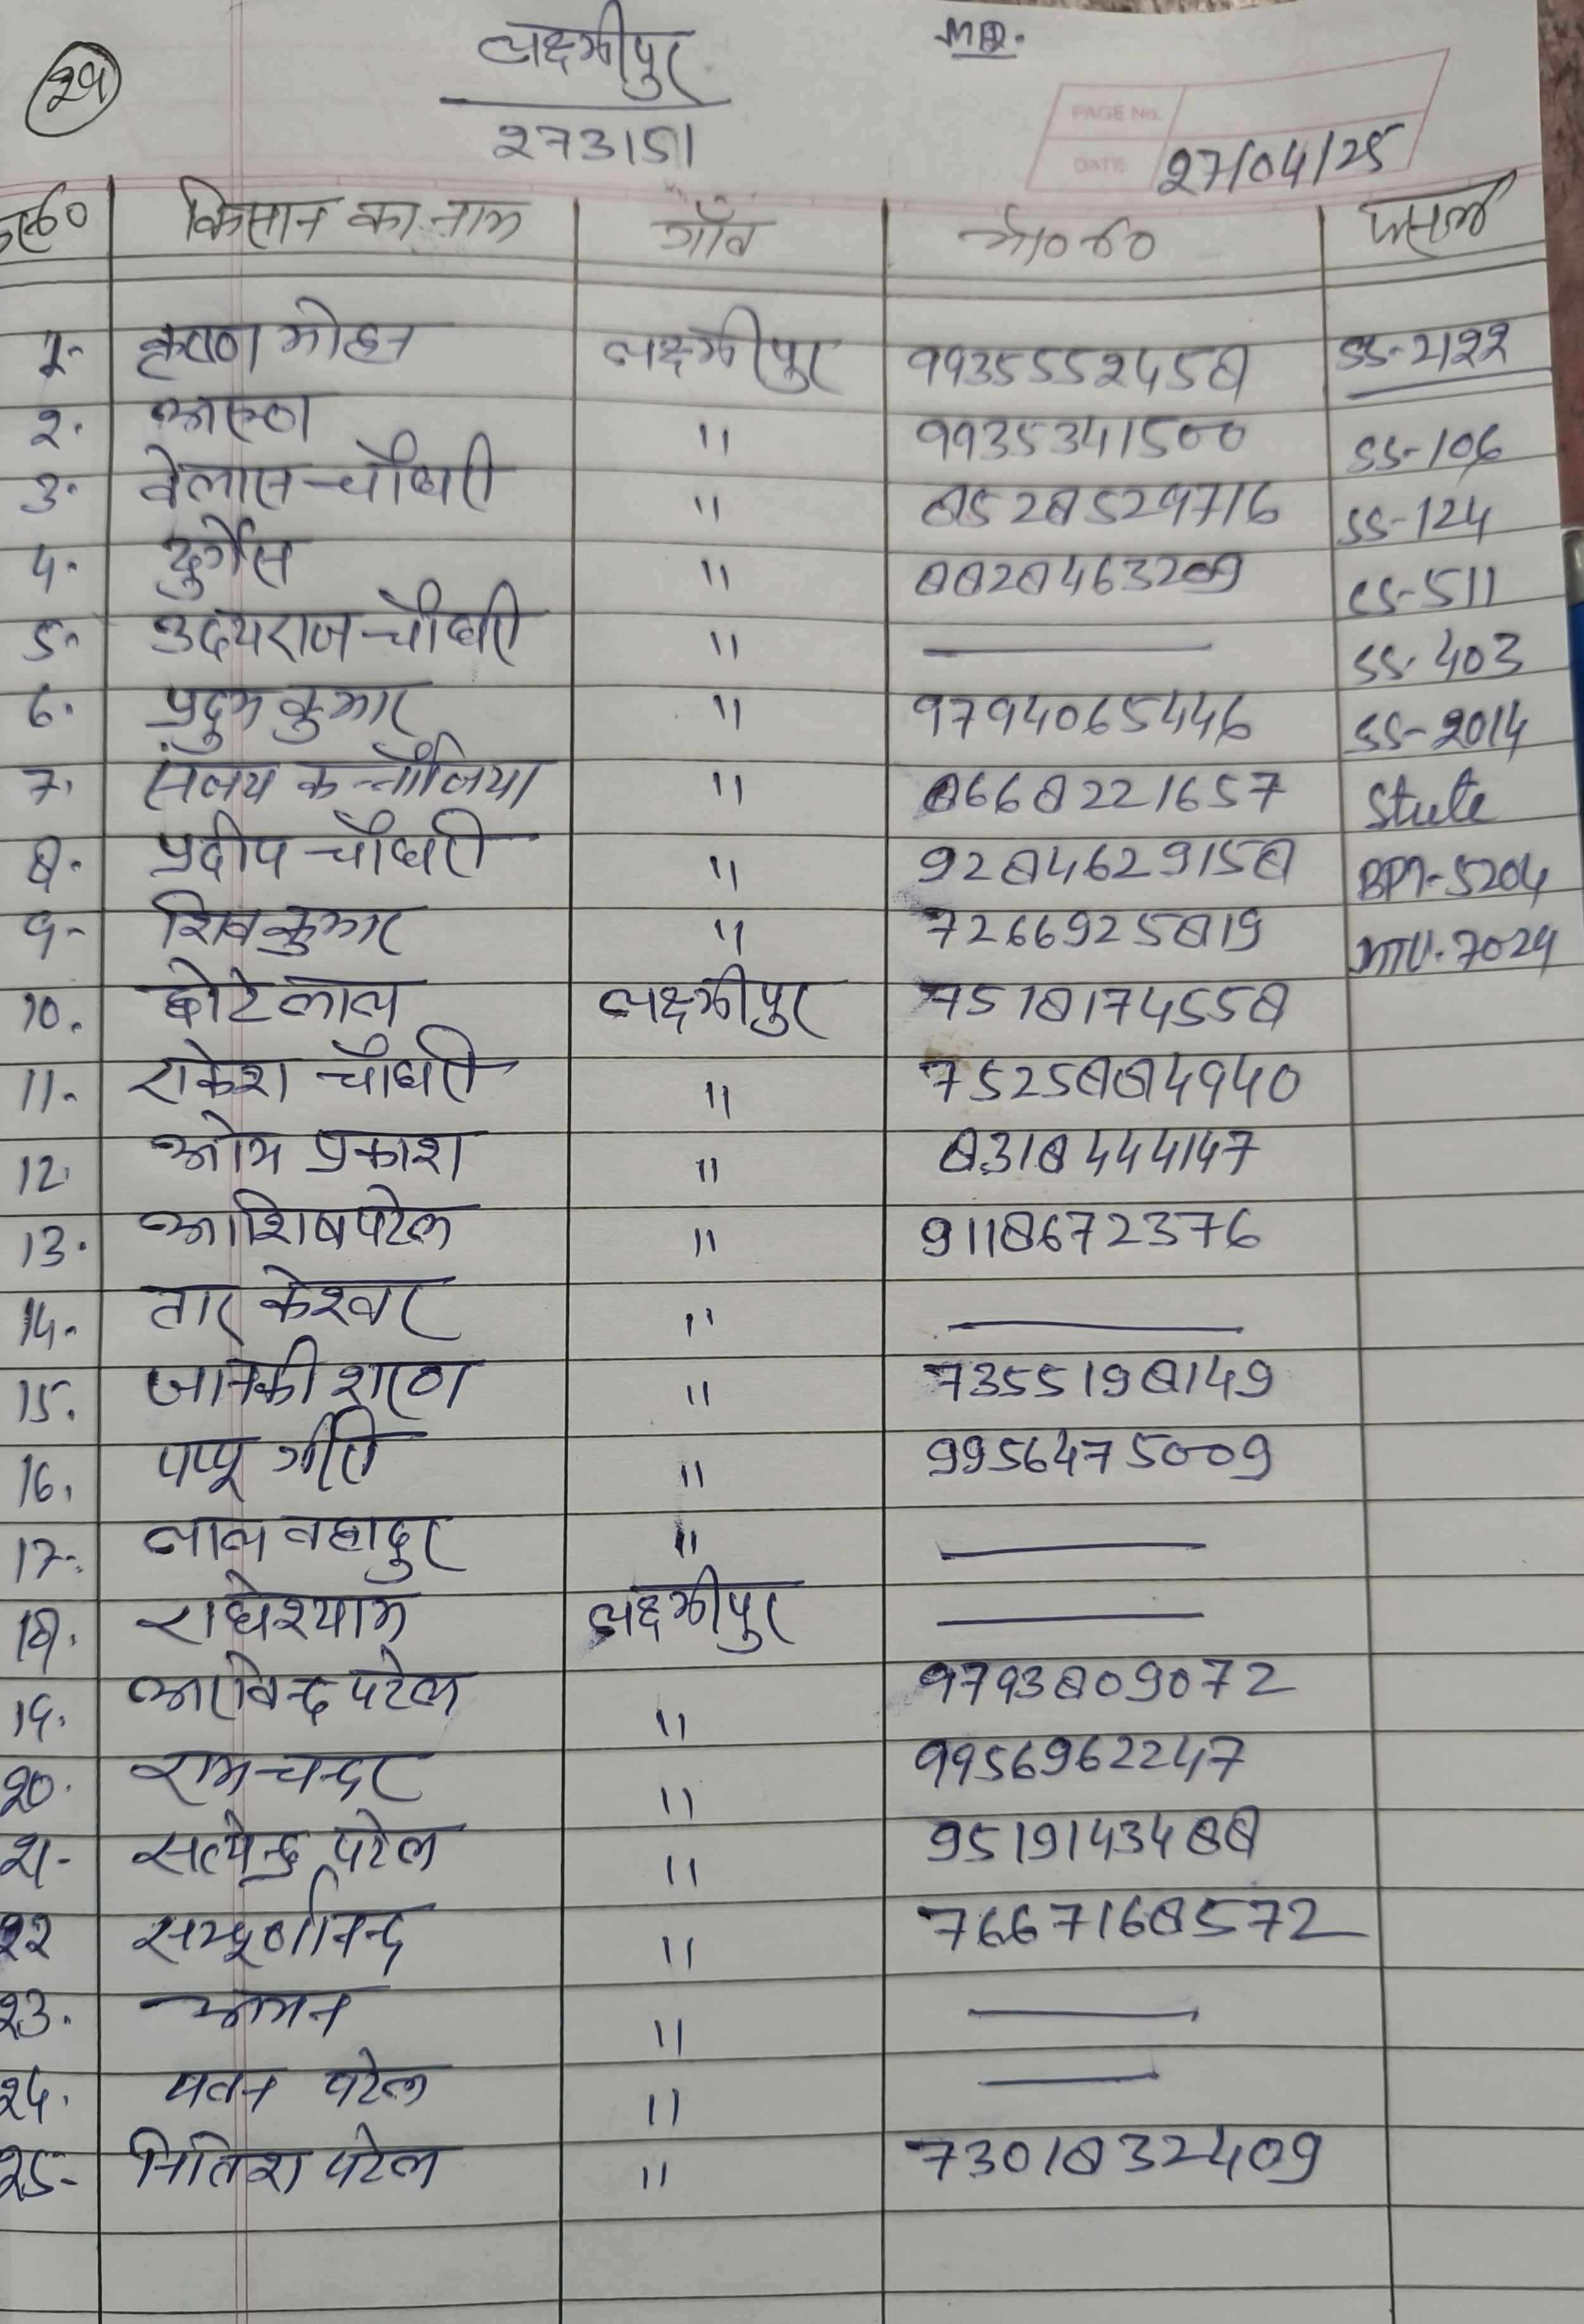 29
लक्ष्मीपुर
MQ.
273151
PAGE No.
DATE 27/04/25
क्र०सं० किसान का नाम गाँव मो०नं० फसल
1- कृष्ण मोहन लक्ष्मीपुर 9935552458 SS-2122
2. अरूण " 9935341500 SS-106
3. वेलास चौधरी " 8528529716 SS-124
4. दुर्गेस " 8828463209 SS-511
5- उदयराज चौधरी " — SS-403
6. प्रदुम कुमार " 9794065446 SS-2014
7. संजय कन्नौजिया " 8668221657
8. प्रदीप चौधरी " 9284629158 BPT-5204
9- शिवकुमार " 7266925819 MTU-7029
10. छोटेलाल लक्ष्मीपुर 7518174558
11- राकेश चौधरी " 7525884940
12. ओम प्रकाश " 8318444147
13. आशिष पटेल " 9118672376
14. तारकेश्वर " —
15. जानकी शरण " 7355198149
16. पप्पू गिरी " 9956475009
17- लाल बहादुर " —
18. राधेश्याम लक्ष्मीपुर —
19. अरविन्द पटेल " 9793809072
20. रामचन्दर " 9956962247
21- सत्येन्द्र पटेल " 9519143488
22 सम्पूर्णानन्द " 7667168572
23. अमन " —
24. पतन पटेल " —
25- नितिश पटेल " 7301832409